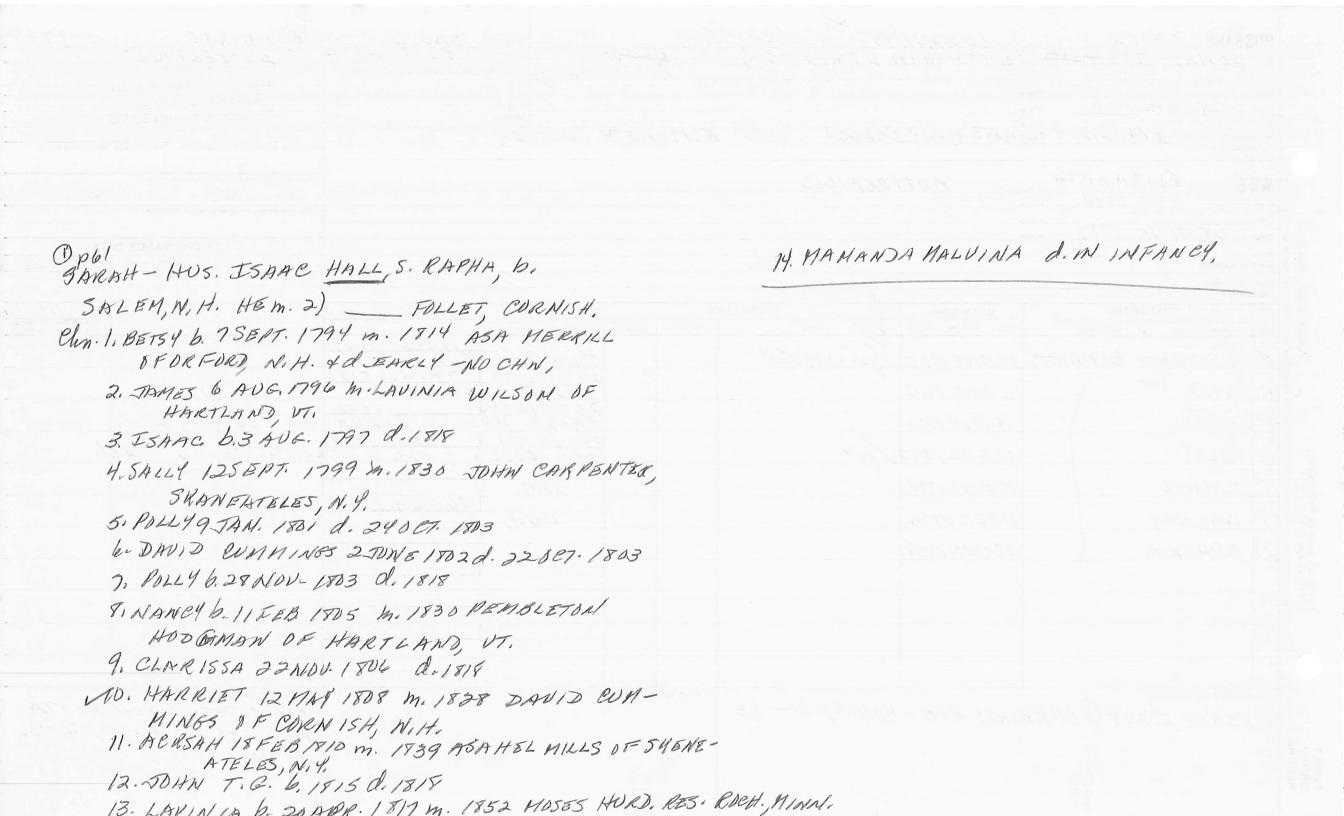 ① p61
SARAH - HUS. ISAAC HALL, S. RAPHA, b.
SALEM, N.H. HE m. 2) ____ FOLLET, CORNISH.
Chn. 1. BETSY b. 7 SEPT. 1794 m. 1814 ASA MERRILL
OF ORFORD, N.H. & d EARLY - NO CHN.
2. JAMES 6 AUG. 1796 m. LAVINIA WILSON OF
HARTLAND, VT.
3. ISAAC b. 3 AUG. 1797 d. 1818
4. SALLY 12 SEPT. 1799 m. 1830 JOHN CARPENTER,
SKANEATELES, N.Y.
5. POLLY 9 JAN. 1801 d. 24 OCT. 1803
6. DAVID CUMMINGS 2 JUNE 1802 d. 22 OCT. 1803
7. POLLY b. 28 NOV- 1803 d. 1818
8. NANCY b. 11 FEB 1805 m. 1830 PEMBLETON
HODGMAN OF HARTLAND, VT.
9. CLARISSA 22 NOV. 1806 d. 1818
✓10. HARRIET 12 MAY 1808 m. 1828 DAVID CUM-
MINGS OF CORNISH, N.H.
11. ACRSAH 18 FEB 1810 m. 1839 ASAHEL MILLS OF SKENE-
ATELES, N.Y.
12. JOHN T.G. b. 1815 d. 1818
13. LAVINIA b. 20 APR. 1817 m. 1852 MOSES HURD. RES. ROCH., MINN.
14. MAMANDA MALVINA d. IN INFANCY.